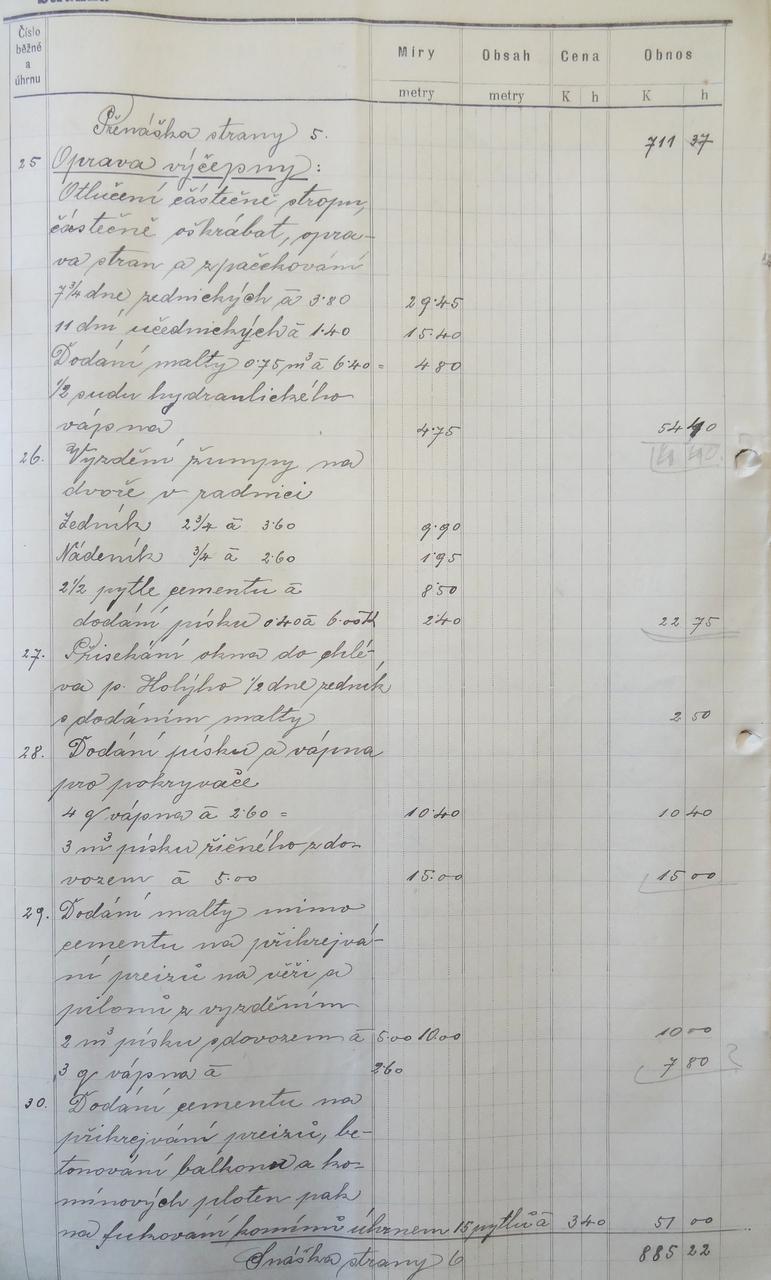 Číslo běžné a úhrnu Míry Obsah Cena Obnos
metry metry K h K h
Přenáška strany 5. 711 37
25 Oprava výčepny:
Otlučení částečně stropu,
částečně oškrábat, opra-
va stran a zpačekování
7 3/4 dne zednických á 3·80 29·45
11 dní učednických á 1·40 15·40
Dodání malty 0·75 m³ á 6·40 = 4 80
1/2 sudu hydraulického
vápna 4·75 54 40
26. Vyzdění žumpy na
dvoře v radnici
Zedník 2 3/4 á 3·60 9·90
Nádeník 3/4 á 2·60 1·95
2 1/2 pytle cementu á 8·50
dodání písku 0·40 á 6·00 K 2·40 22 75
27. Přisekání okna do chlé-
va p. Holýho 1/2 dne zedník
s dodáním malty 2 50
28. Dodání písku a vápna
pro pokryvače
4 q vápna á 2·60 = 10·40 10 40
3 m³ písku říčného z do-
vozem á 5·00 15·00 15 00
29. Dodání malty mimo
cementu na přikrejvá-
ní preizů na věži a
pilonů z vyzděním
2 m³ písku s dovozem á 5·00 10·00 10 00
3 q vápna á 2·60 7 80 ?
30. Dodání cementu na
přikrejvání preizů, be-
tonování balkonu a ko-
mínových ploten pak
na fukování komínů úhrnem 15 pytlů á 3 40 51 00
Snáška strany 6 885 22